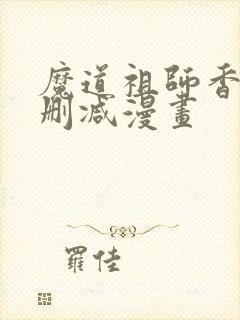 魔道祖師香
刪減漫畫
羅佳